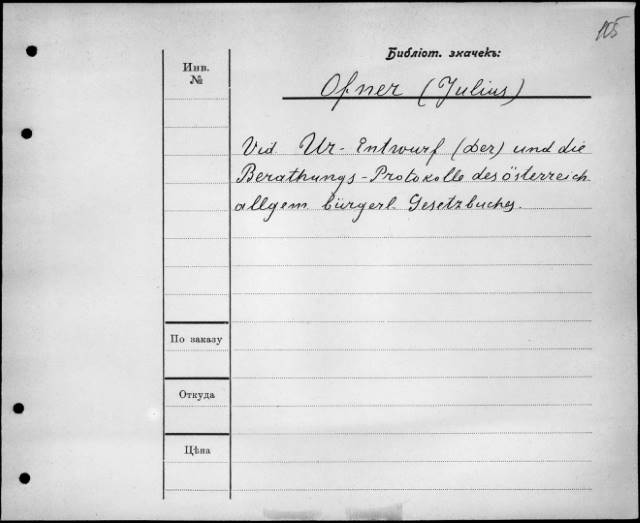 105
Библіот. значекъ:
Инв.
№
Ofner (Julius)
Vid. Ur-Entwurf (der) und die
Berathungs-Protokolle des österreich.
allgem. bürgerl. Gesetzbuches.
По заказу
Откуда
Цѣна